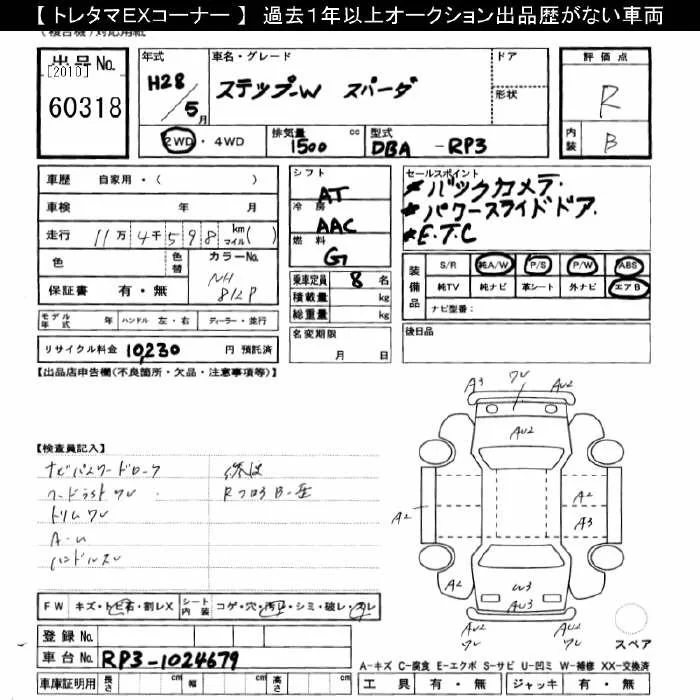 【トレタマEXコーナー】 過去1年以上オークション出品歴がない車両
出品No.
[2010]
60318
年式
H28/5月
車名・グレード
ステップW スパーダ
ドア
形状
評価点
R
内装
B
2WD・4WD
排気量 1500 cc
型式 DBA-RP3
車歴 自家用・( )
車検 年 月
走行 11万4千598 km マイル( )
色
色替
カラーNo.
NH
812P
保証書 有・無
モデル年式 年 ハンドル 左・右 ディーラー・並行
リサイクル料金 10,230 円 預託済
シフト
AT
冷房
AAC
燃料
G
乗車定員 8 名
積載量 kg
総重量 kg
名変期限
月 日
セールスポイント
*バックカメラ.
*パワースライドドア.
*E.T.C
装備品
S/R 純A/W P/S P/W ABS
純TV 純ナビ 革シート 外ナビ エアB
ナビ型番:
後日品
【出品店申告欄(不良箇所・欠品・注意事項等)】
【検査員記入】
ナビパスワードロック
トリムワレ
ハンドルスレ
FW キズ・トビ石・割レX
シート内装 コゲ・穴・汚レ・シミ・破レ・スレ
登録No.
車台No. RP3-1024679
車庫証明用 長さ cm 幅 cm 高さ cm
A3 ワレ AU2
AU2
A2
A2
A3
A2
W3
AU3
AU2
ワレ
AU2
ワレ
スペア
A-キズ C-腐食 E-エクボ S-サビ U-凹ミ W-補修 XX-交換済
工具 有・無 ジャッキ 有・無